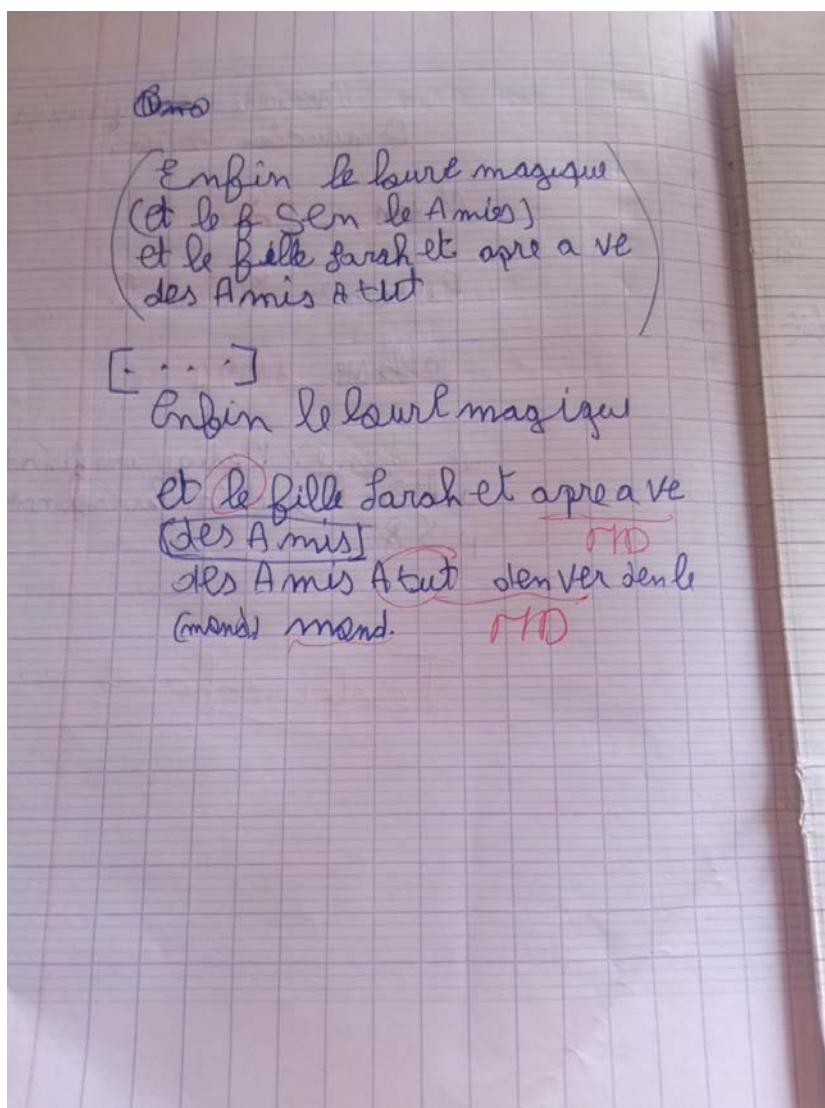 (Enfin le lourt magique
(et le f Sen le Amies)
et le fille Sarah et apre a ve
des Amis A tut)
[. . . .]
Enfin le lourt magique
et le fille Sarah et apre a ve
[des Amis] MD
des Amis A tut den ver den le
(mond) mond. MD